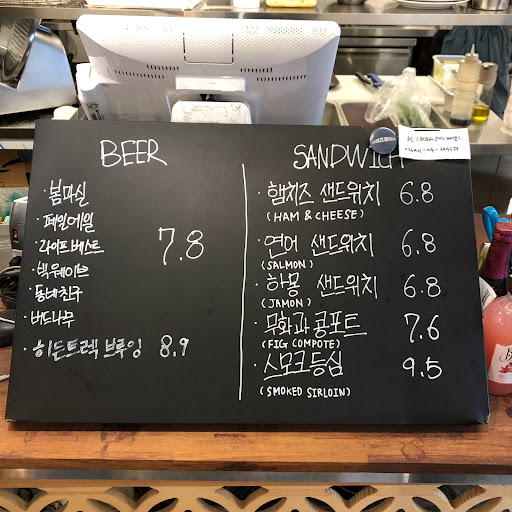 BEER
·봄마실
· 페일에일
· 라이프 베스트
· 빅웨이브
· 동네친구
· 버드나무
7.8
· 히든트랙 브루잉 8.9
SANDWICH
· 햄치즈 샌드위치 6.8
(HAM & CHEESE)
· 연어 샌드위치 6.8
(SALMON)
· 하몽 샌드위치 6.8
(JAMON)
· 무화과 콩포트 7.6
(FIG COMPOTE)
· 스모크등심 9.5
(SMOKED SIRLOIN)